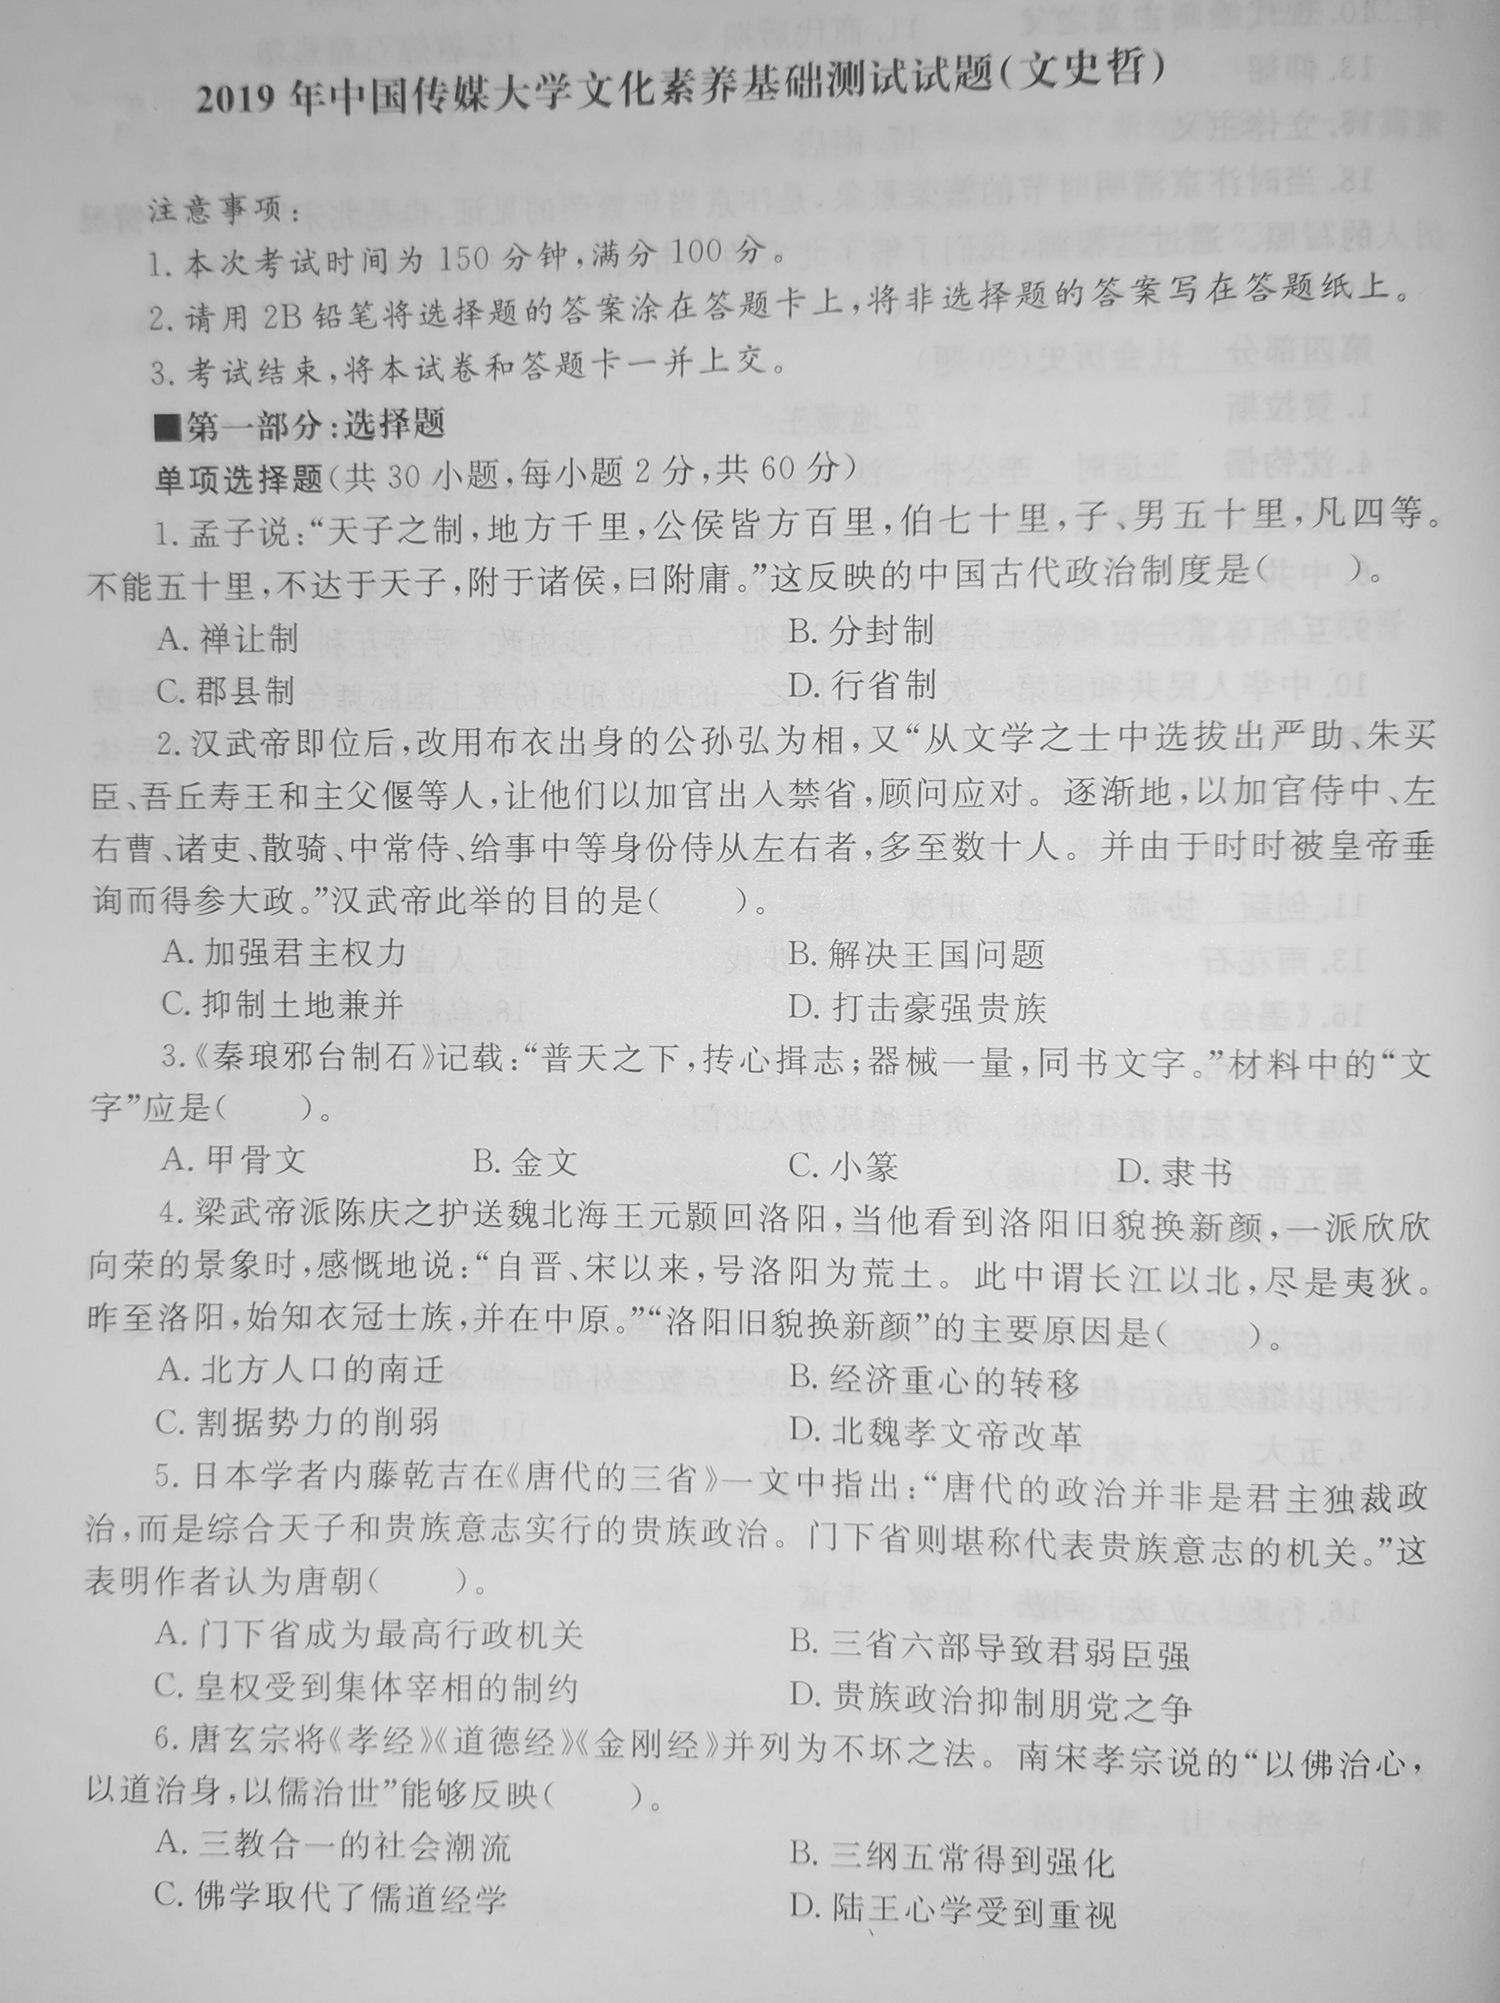 2019年中国传媒大学文化素养基础测试试题(文史哲)
注意事项:
1.本次考试时间为150分钟,满分100分。
2.请用2B铅笔将选择题的答案涂在答题卡上,将非选择题的答案写在答题纸上。
3.考试结束,将本试卷和答题卡一并上交。
■第一部分:选择题
单项选择题(共30小题,每小题2分,共60分)
1.孟子说:“天子之制,地方千里,公侯皆方百里,伯七十里,子、男五十里,凡四等。
不能五十里,不达于天子,附于诸侯,曰附庸。”这反映的中国古代政治制度是(  )。
A.禅让制 B.分封制
C.郡县制 D.行省制
2.汉武帝即位后,改用布衣出身的公孙弘为相,又“从文学之士中选拔出严助、朱买
臣、吾丘寿王和主父偃等人,让他们以加官出入禁省,顾问应对。逐渐地,以加官侍中、左
右曹、诸吏、散骑、中常侍、给事中等身份侍从左右者,多至数十人。并由于时时被皇帝垂
询而得参大政。”汉武帝此举的目的是(  )。
A.加强君主权力 B.解决王国问题
C.抑制土地兼并 D.打击豪强贵族
3.《秦琅邪台制石》记载:“普天之下,抟心揖志;器械一量,同书文字。”材料中的“文
字”应是(  )。
A.甲骨文 B.金文 C.小篆 D.隶书
4.梁武帝派陈庆之护送魏北海王元颢回洛阳,当他看到洛阳旧貌换新颜,一派欣欣
向荣的景象时,感慨地说:“自晋、宋以来,号洛阳为荒土。此中谓长江以北,尽是夷狄。
昨至洛阳,始知衣冠士族,并在中原。”“洛阳旧貌换新颜”的主要原因是(  )。
A.北方人口的南迁 B.经济重心的转移
C.割据势力的削弱 D.北魏孝文帝改革
5.日本学者内藤乾吉在《唐代的三省》一文中指出:“唐代的政治并非是君主独裁政
治,而是综合天子和贵族意志实行的贵族政治。门下省则堪称代表贵族意志的机关。”这
表明作者认为唐朝(  )。
A.门下省成为最高行政机关 B.三省六部导致君弱臣强
C.皇权受到集体宰相的制约 D.贵族政治抑制朋党之争
6.唐玄宗将《孝经》《道德经》《金刚经》并列为不坏之法。南宋孝宗说的“以佛治心,
以道治身,以儒治世”能够反映(  )。
A.三教合一的社会潮流 B.三纲五常得到强化
C.佛学取代了儒道经学 D.陆王心学受到重视